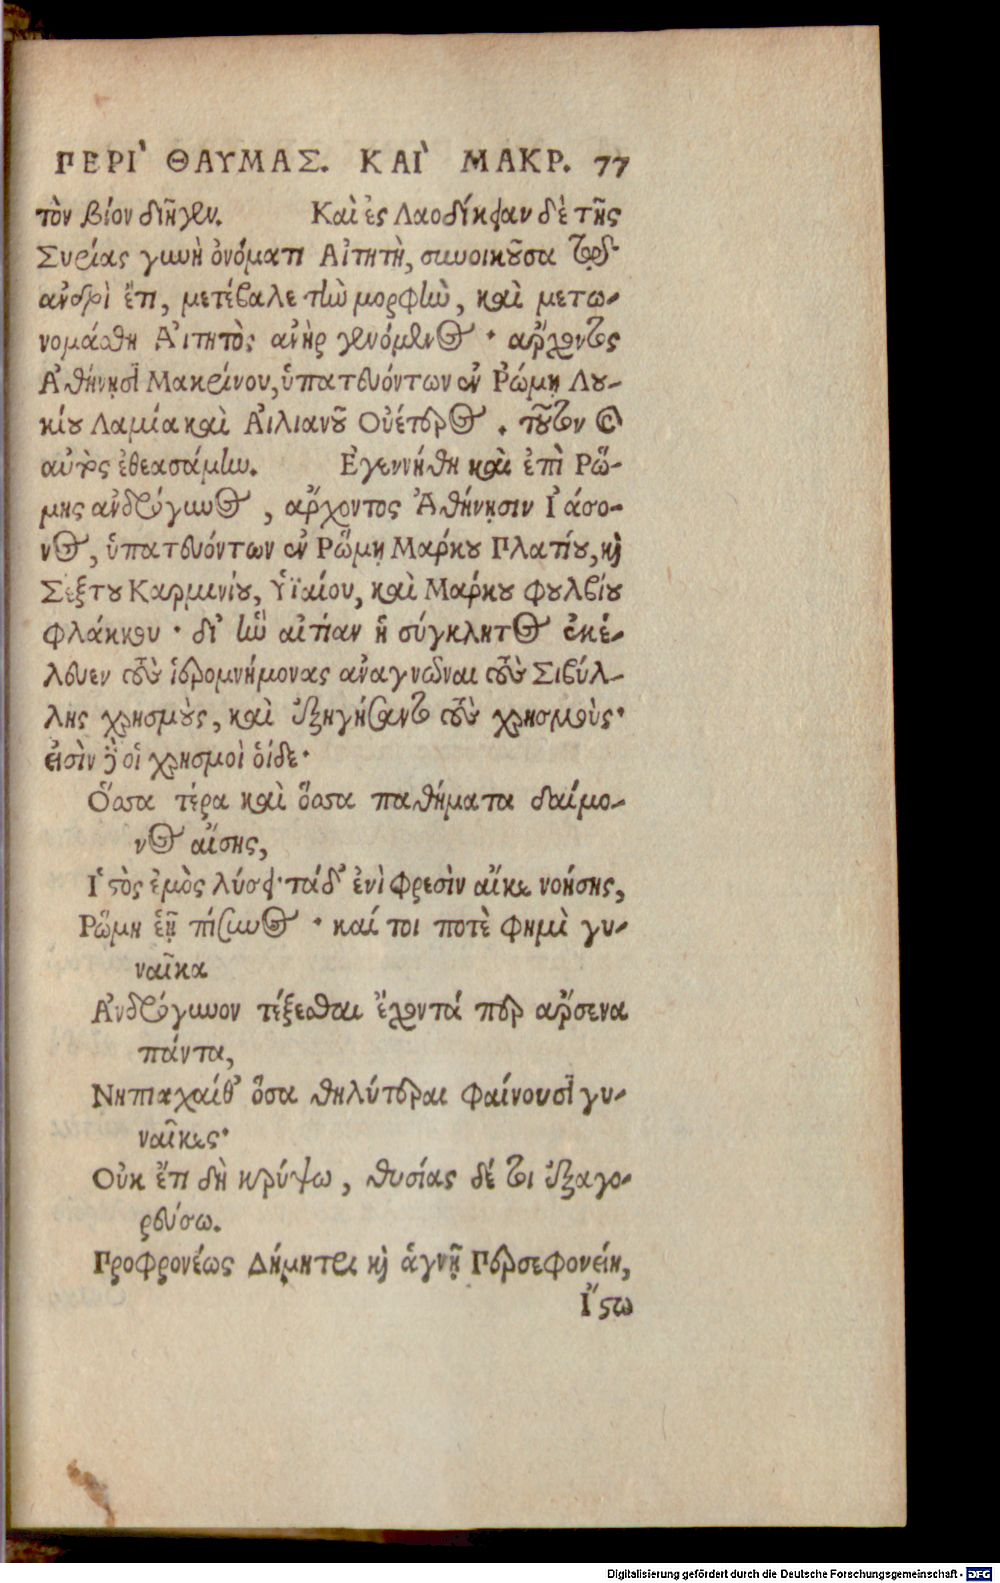 ΠΕΡΙ' ΘΑΥΜΑΣ. ΚΑΙ' ΜΑΚΡ. 77
τὸν βίον διῆγεν. Καὶ ἐς Λαοδίκειαν δὲ τῆς
Συρίας γυνὴ ὀνόματι Αἰτητὴ, συνοικοῦσα τῷδ'
ἀνδρὶ ἔτι, μετέβαλε τὴν μορφὴν, καὶ μετω-
νομάσθη Αἰτητὸς ἀνὴρ γενόμενος· ἄρχοντος
Ἀθήνῃσι Μακρίνου, ὑπατευόντων ἐν Ῥώμῃ Λου-
κίου Λαμία καὶ Αἰλιανοῦ Οὐέτερος. τοῦτον καὶ
αὐτὸς ἐθεασάμην. Ἐγεννήθη καὶ ἐπὶ Ῥώ-
μης ἀνδρόγυνος, ἄρχοντος Ἀθήνῃσιν Ἰάσο-
νος, ὑπατευόντων ἐν Ῥώμῃ Μάρκου Πλατίου, καὶ
Σέξτου Καρμινίου, Ὑϊαίου, καὶ Μάρκου Φουλβίου
Φλάκκου· δι' ἣν αἰτίαν ἡ σύγκλητος ἐκέ-
λευεν τοὺς ἱερομνήμονας ἀναγνῶναι τοὺς Σιβύλ-
λης χρησμοὺς, καὶ ἐξηγήσαντο τοὺς χρησμοὺς·
εἰσὶν δὲ οἱ χρησμοὶ οἵδε·
Ὅσσα τέρα καὶ ὅσσα παθήματα δαίμο-
νος αἴσης,
Ἱστὸς ἐμὸς λύσει· τάδ' ἐνὶ φρεσὶν αἴκε νοήσῃς,
Ῥώμη ἑῇ πίσυνος· καί τοι ποτὲ φημὶ γυ-
ναῖκα
Ἀνδρόγυνον τέξεσθαι ἔχοντά περ ἄρσενα
πάντα,
Νηπιαχαίθ' ὅσα θηλύτεραι φαίνουσι γυ-
ναῖκες·
Οὐκ ἔτι δὴ κρύψω, θυσίας δέ τοι ἐξαγο-
ρεύσω.
Προφρονέως Δήμητρι καὶ ἁγνῇ Περσεφονείῃ,
Ἵστω
Digitalisierung gefördert durch die Deutsche Forschungsgemeinschaft - DFG